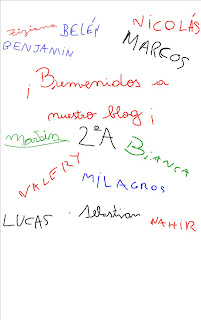 Tiziana BELÉN NICOLÁS
BENJAMIN MARCOS
¡ Bienvenidos a
nuestro blog ¡
Martina 2ºA BIANCA
VALERY
MILAGROS
LUCAS . Sebastian NAHIR